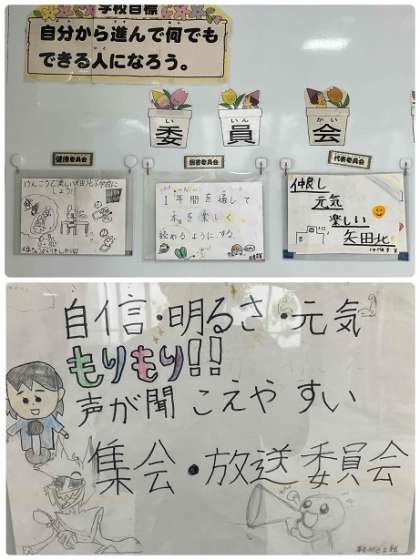 学校目標
自分から進んで何でも
できる人になろう。
い いん かい
委 員 会
健康委員会
図書委員会
代表委員会
1年間を通して
本を楽しく
読めるようにする
仲良し
元気
楽しい
矢田北
自信・明るさ・元気
もりもり!!
声が聞こえやすい
集会・放送委員会